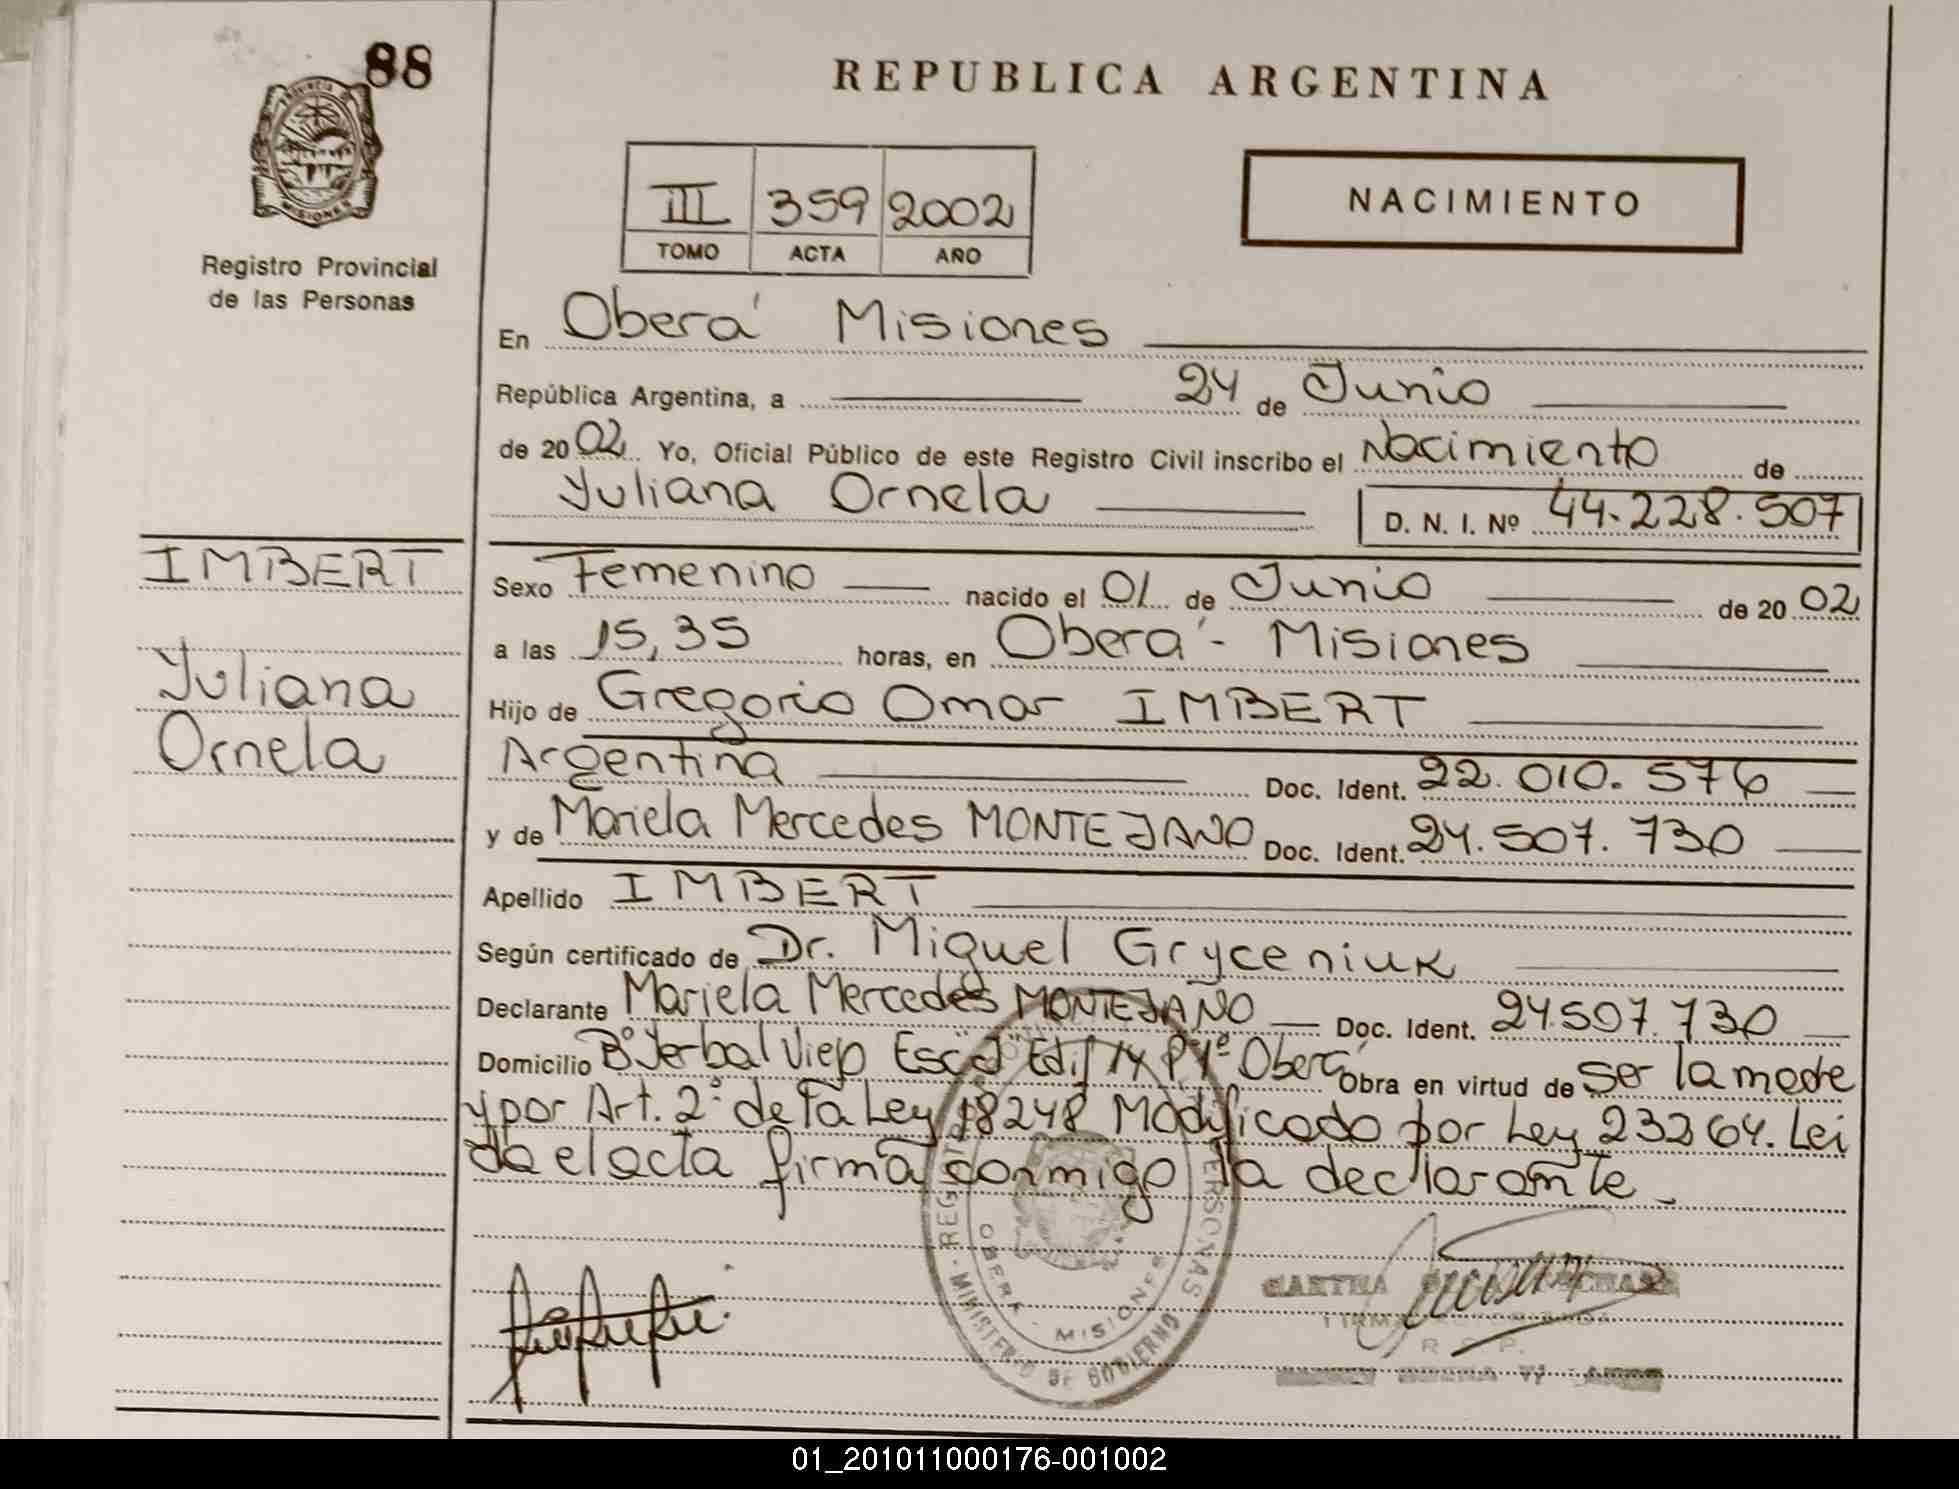 88
REPUBLICA ARGENTINA
PROVINCIA DE
MISIONES
Registro Provincial
de las Personas
III 359 2002
TOMO ACTA AÑO
NACIMIENTO
En Oberá Misiones
República Argentina, a 24 de Junio
de 2002 Yo, Oficial Público de este Registro Civil inscribo el Nacimiento de
Yuliana Ornela D. N. I. Nº 44.228.507
IMBERT
Yuliana
Ornela
Sexo Femenino nacido el 01 de Junio de 2002
a las 15,35 horas, en Oberá - Misiones
Hijo de Gregorio Omar IMBERT
Argentina Doc. Ident. 22.010.576
y de Mariela Mercedes MONTEJANO Doc. Ident. 24.507.730
Apellido IMBERT
Según certificado de Dr. Miguel Gryceniuk
Declarante Mariela Mercedes MONTEJANO Doc. Ident. 24.507.730
Domicilio Bº Yerbal Viejo Esc "J" Edif IX P 1º Oberá Obra en virtud de ser la madre
y por Art. 2º de la Ley 18248 Modificado por Ley 23264. Lei
da el acta firma conmigo la declarante
MINISTERIO DE GOBIERNO
OBERA - MISIONES
01_201011000176-001002